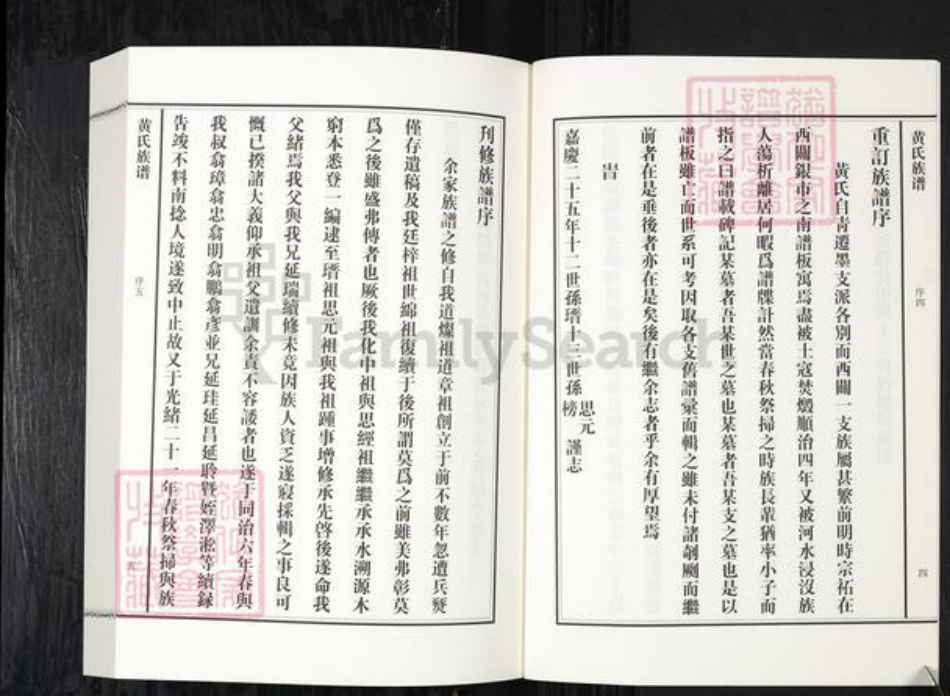 黄氏族谱
序四
四
重訂族譜序
黃氏自青遷墨支派各別而西關一支族屬甚繁前明時宗祏在
西關銀市之南譜板寓焉盡被土寇焚燬順治四年又被河水浸沒族
人蕩析離居何暇爲譜牒計然當春秋祭掃之時族長輩猶率小子而
指之曰譜載碑記某墓者吾某世之墓也某墓者吾某支之墓也是以
譜板雖亡而世系可考因取各支舊譜彙而輯之雖未付諸剞劂而繼
前者在是垂後者亦在是矣後有繼余志者乎余有厚望焉
旹
嘉慶二十五年十二世孫瑨十三世孫思元榜謹志
刋修族譜序
余家族譜之修自我道燦祖道章祖創立于前不數年忽遭兵燹
僅存遺稿及我廷梓祖世綿祖復續于後所謂莫爲之前雖美弗彰莫
爲之後雖盛弗傳者也厥後我化中祖與思經祖繼繼承承水溯源木
窮本悉登一編逮至瑨祖思元祖與我祖踵事增修承先啓後遂命我
父緒焉我父與我兄延瑞續修未竟因族人資乏遂寢採輯之事良可
慨已揆諸大義仰承祖父遺訓余責不容諉者也遂于同治六年春與
我叔翁璋翁忠翁明翁鵬翁彥並兄延珪延昌延聆暨姪澤淞等續録
告竣不料南捻人境遂致中止故又于光緒二十一年春秋祭掃與族
黄氏族谱
序五
五
FamilySearch